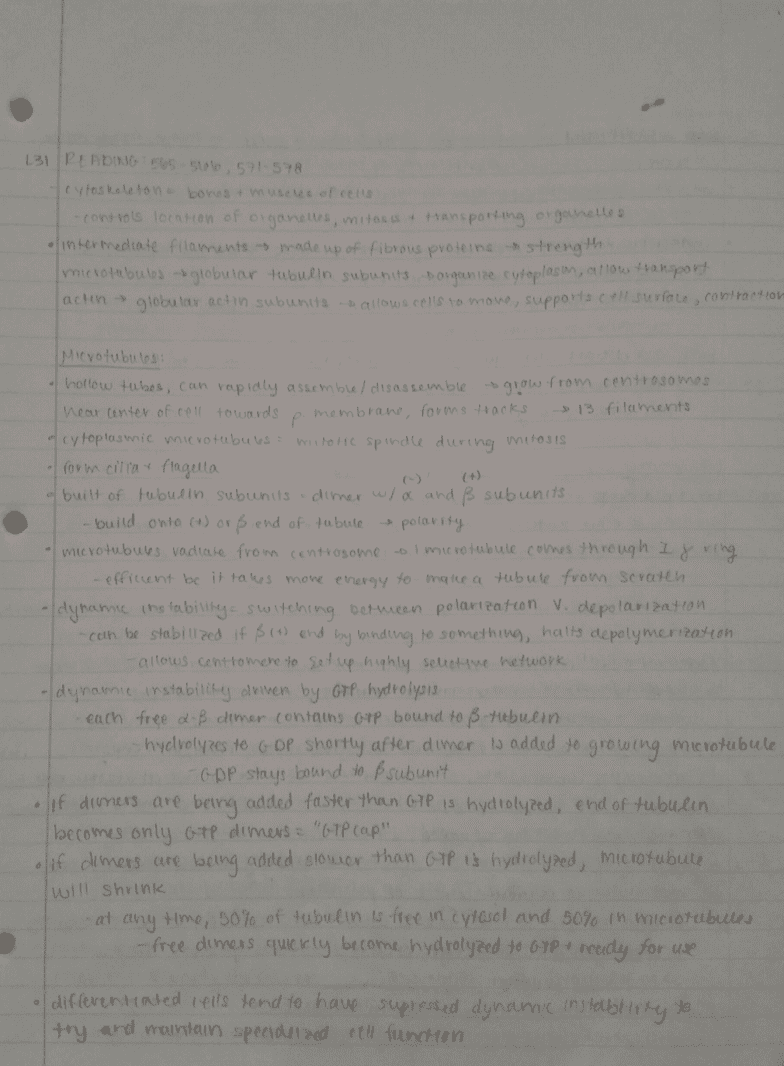 L31 READING: 565-566, 571-578
- cytoskeleton = bones + muscles of cells
- controls location of organelles, mitosis + transporting organelles
• intermediate filaments → made up of fibrous proteins → strength
microtubules → globular tubulin subunits → organize cytoplasm, allow transport
actin → globular actin subunits → allows cells to move, supports cell surface, contraction
Microtubules:
• hollow tubes, can rapidly assemble/disassemble → grow from centrosomes
near center of cell towards p membrane, forms tracks → 13 filaments
• cytoplasmic microtubules = mitotic spindle during mitosis
• form cilia + flagella
(-) (+)
• built of tubulin subunits - dimer w/ α and β subunits
- build onto (+) or β end of tubule → polarity
• microtubules radiate from centrosome → 1 microtubule comes through 1 γ ring
- efficient bc it takes more energy to make a tubule from scratch
- dynamic instability = switching between polarization v. depolarization
- can be stabilized if β(+) end by binding to something, halts depolymerization
- allows centromere to set up highly selective network
- dynamic instability driven by GTP hydrolysis
- each free α-β dimer contains GTP bound to β-tubulin
- hydrolyzes to GDP shortly after dimer is added to growing microtubule
- GDP stays bound to β subunit
• if dimers are being added faster than GTP is hydrolyzed, end of tubulin
becomes only GTP dimers = "GTP cap"
• if dimers are being added slower than GTP is hydrolyzed, microtubule
will shrink
- at any time, 50% of tubulin is free in cytosol and 50% in microtubules
- free dimers quickly become hydrolyzed to GTP + ready for use
• differentiated cells tend to have supressed dynamic instability to
try and maintain specialized cell function